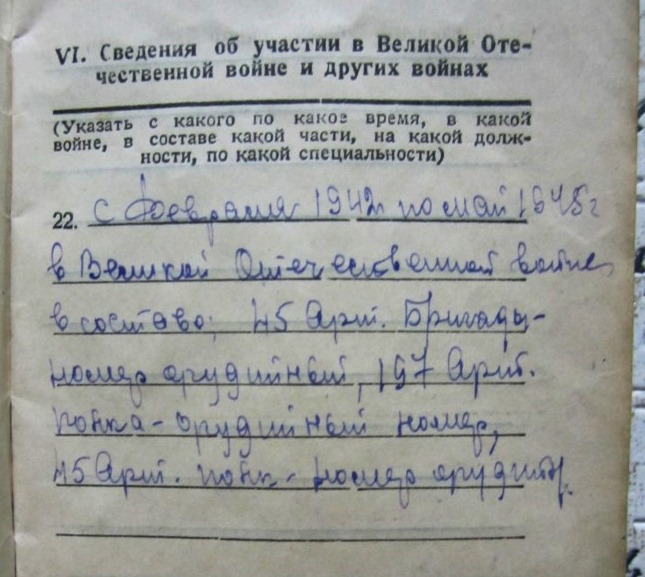 VI. Сведения об участии в Великой Оте-
чественной войне и других войнах
(Указать с какого по какое время, в какой
войне, в составе какой части, на какой долж-
ности, по какой специальности)
22. с февраля 1942 по май 1945 г
в Великой Отечественной войне
в составе: 45 Арт. Бригады-
номер орудийный, 197 Арт.
полка - орудийный номер,
45 Арт. полк - номер орудийн.